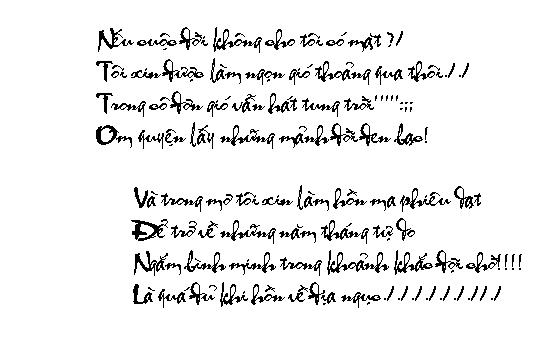 Nếu cuộc đời không cho tôi có mặt ?/
Tôi xin được làm ngọn gió thoảng qua thôi././
Trong cô đơn gió vẫn hát tung trời''''':;;
Om quyện lấy những mảnh đời đen bạc!
Và trong mơ tôi xin làm hồn ma phiêu dạt
Để trở về những năm tháng tự do
Ngắm bình minh trong khoảnh khắc đợi chờ!!!!
Là quá đủ khi hồn về địa ngục./././././././/./